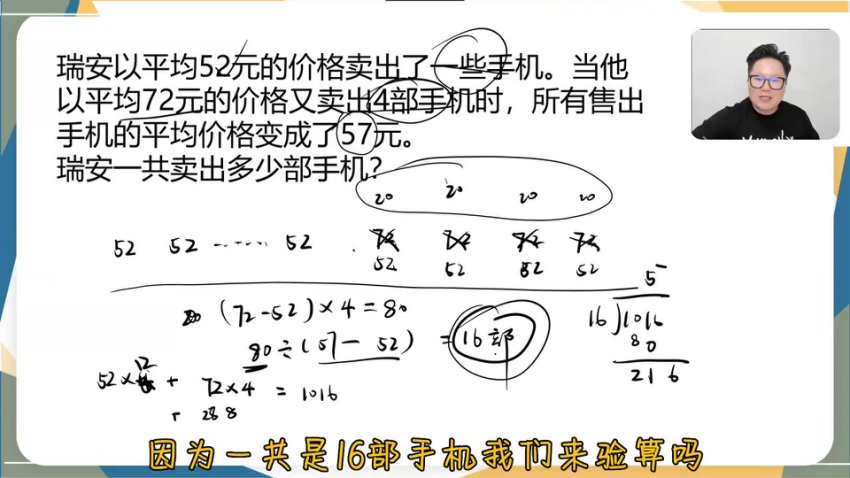 瑞安以平均52元的价格卖出了一些手机。当他
以平均72元的价格又卖出4部手机时，所有售出
手机的平均价格变成了57元。
瑞安一共卖出多少部手机？
20 20 20 20
52 52 ...... 52 . 72 72 72 72
52 52 52 52
(72-52)×4=80
80÷(57-52)=16部
52×12+72×4=1016
+288
5
16)1016
80
216
因为一共是16部手机我们来验算吗